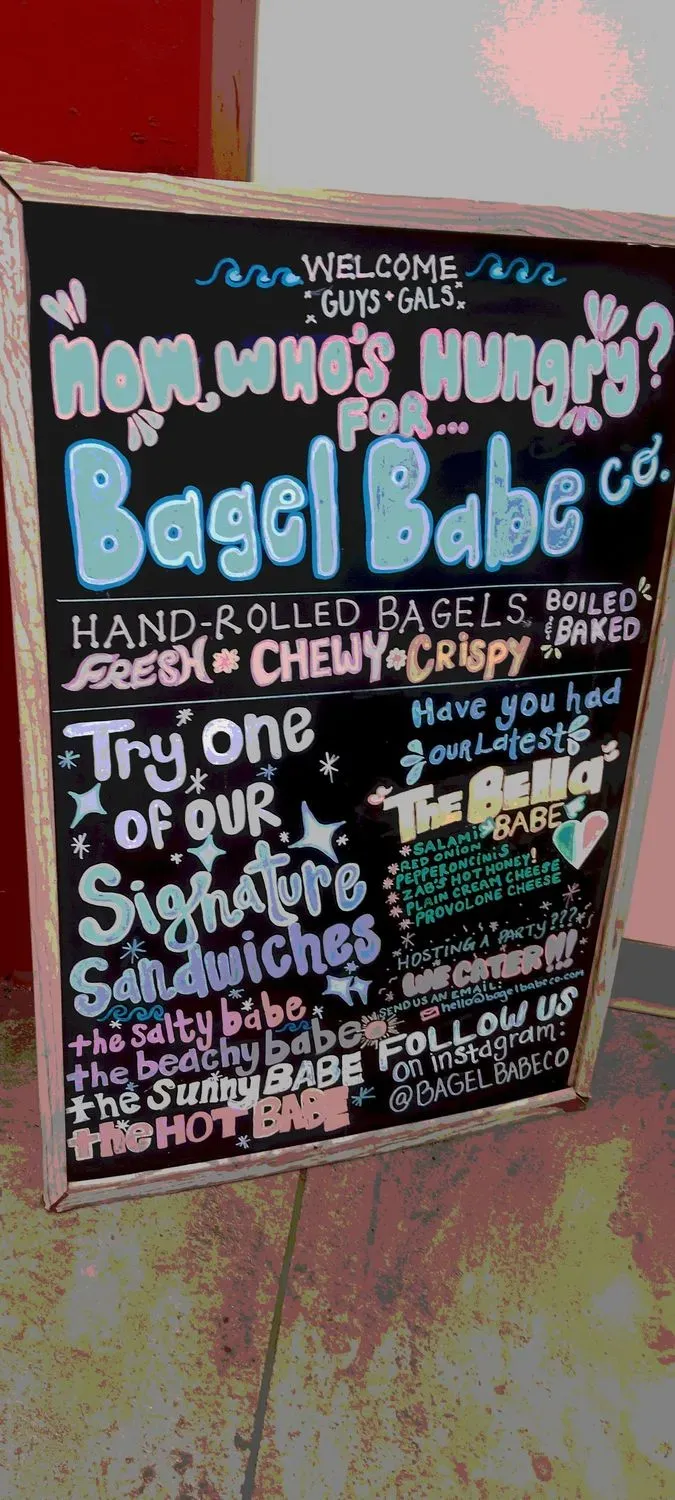 WELCOME
GUYS + GALS
NOW WHO'S HUNGRY?
FOR...
Bagel Babe co.
HAND-ROLLED BAGELS
BOILED
& BAKED
FRESH * CHEWY * CRISPY
Try One
of OUR
Signature
Sandwiches
the salty babe
the beachy babe
the Sunny BABE
the HOT BABE
Have you had
OUR Latest
THE Bella
BABE
SALAMI
RED ONION
PEPPERONCINIS
ZAB'S HOT HONEY!
PLAIN CREAM CHEESE
PROVOLONE CHEESE
HOSTING A PARTY???
WE CATER!!!
SEND US AN EMAIL:
hello@bagelbabeco.com
FOLLOW US
on instagram:
@BAGELBABECO